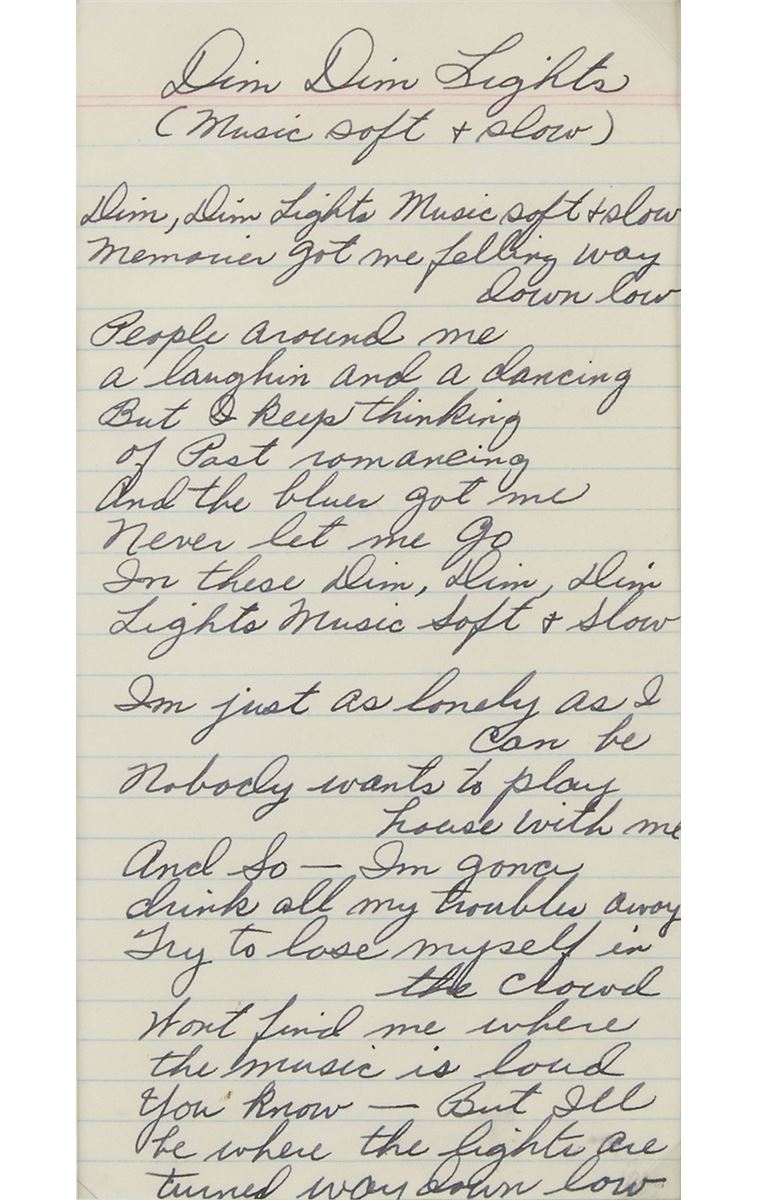 Dim Dim Lights
(Music soft + slow)
Dim, Dim Lights Music soft + slow
Memories got me felling way
down low
People around me
a laughin and a dancing
But I keep thinking
of Past romancing
And the blues got me
Never let me Go
In these Dim, Dim, Dim
Lights Music Soft + Slow
Im just as lonely as I
Can be
Nobody wants to play
house with me
And So — Im gona
drink all my troubles away
Try to lose myself in
the Crowd
Wont find me where
the music is loud
You know — But Ill
be where the lights are
turned way down low